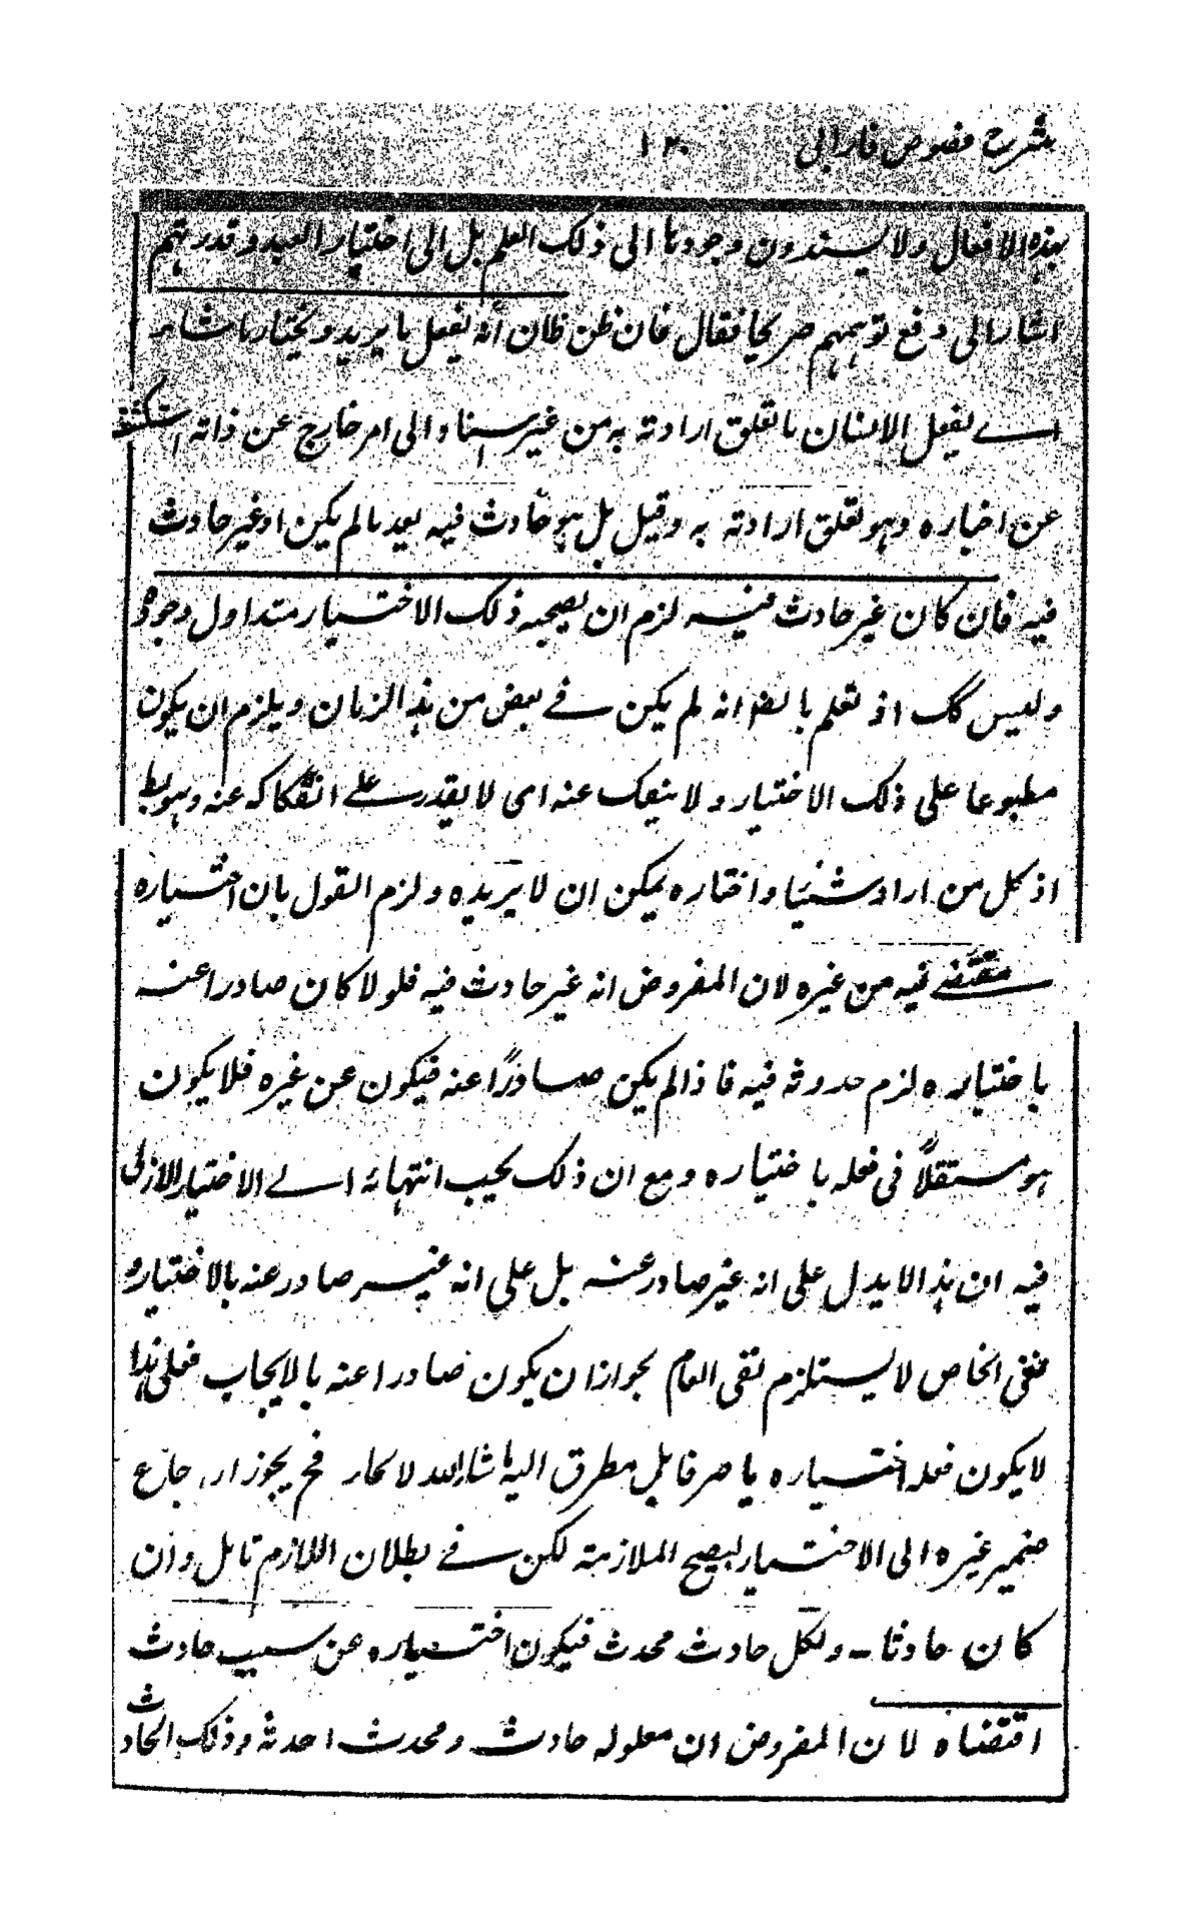 شرح فصوص فارابی ١٢٠
بهذه الافعال ولا يسندون وجودها الى ذلك العلم بل الى اختيار العبد وقدرتهم
اشار الى دفع توهمهم صريحا فقال فان ظن ظان أنه يفعل ما يريد ويختار ما شاء
اے يفعل الانسان ما تعلق ارادته به من غير استناد الى امر خارج عن ذاته استكشف
عن اختياره وهو تعلق ارادته به وقيل بل هو حادث فيه بعد ما لم يكن او غير حادث
فيه فان كان غير حادث فيه لزم ان يصحبه ذلك الاختيار منذ اول وجوده
وليس كك اذ نعلم بالضـ انه لم يكن فے بعض من هذا الزمان ويلزم ان يكون
مطبوعا على ذلك الاختيار ولا ينفك عنه اى لا يقدر علے انفكاكه عنه وهو بط
اذ كل من اراد شيئا واختاره يمكن ان لا يريده ولزم القول بان اختياره
مقتضے فيه من غيره لان المفروض انه غير حادث فيه فلو لا كان صادرا عنه
باختياره لزم حدوثه فيه فاذا لم يكن صادرًا عنه فيكون عن غيره فلا يكون
هو مستقلاً فى فعله باختياره ومع ان ذلك يجب انتهائه اے الاختيار الازلى
فيه ان هذا لا يدل على انه غير صادر عنه بل على انه غير صادر عنه بالاختيار و
نفى الخاص لا يستلزم نفى العام لجواز ان يكون صادرا عنه بالايجاب فعلى هذا
لا يكون فعله اختياره فح يجوز ارجاع
ضمير غيره الى الاختيار ليصح الملازمة لكن فے بطلان اللازم تامل وان
كان حادثا ـ ولكل حادث محدث فيكون اختياره عن سبب حادث
اقتضاه لان المفروض ان معلوله حادث ومحدث احدثه وذلك الحادث